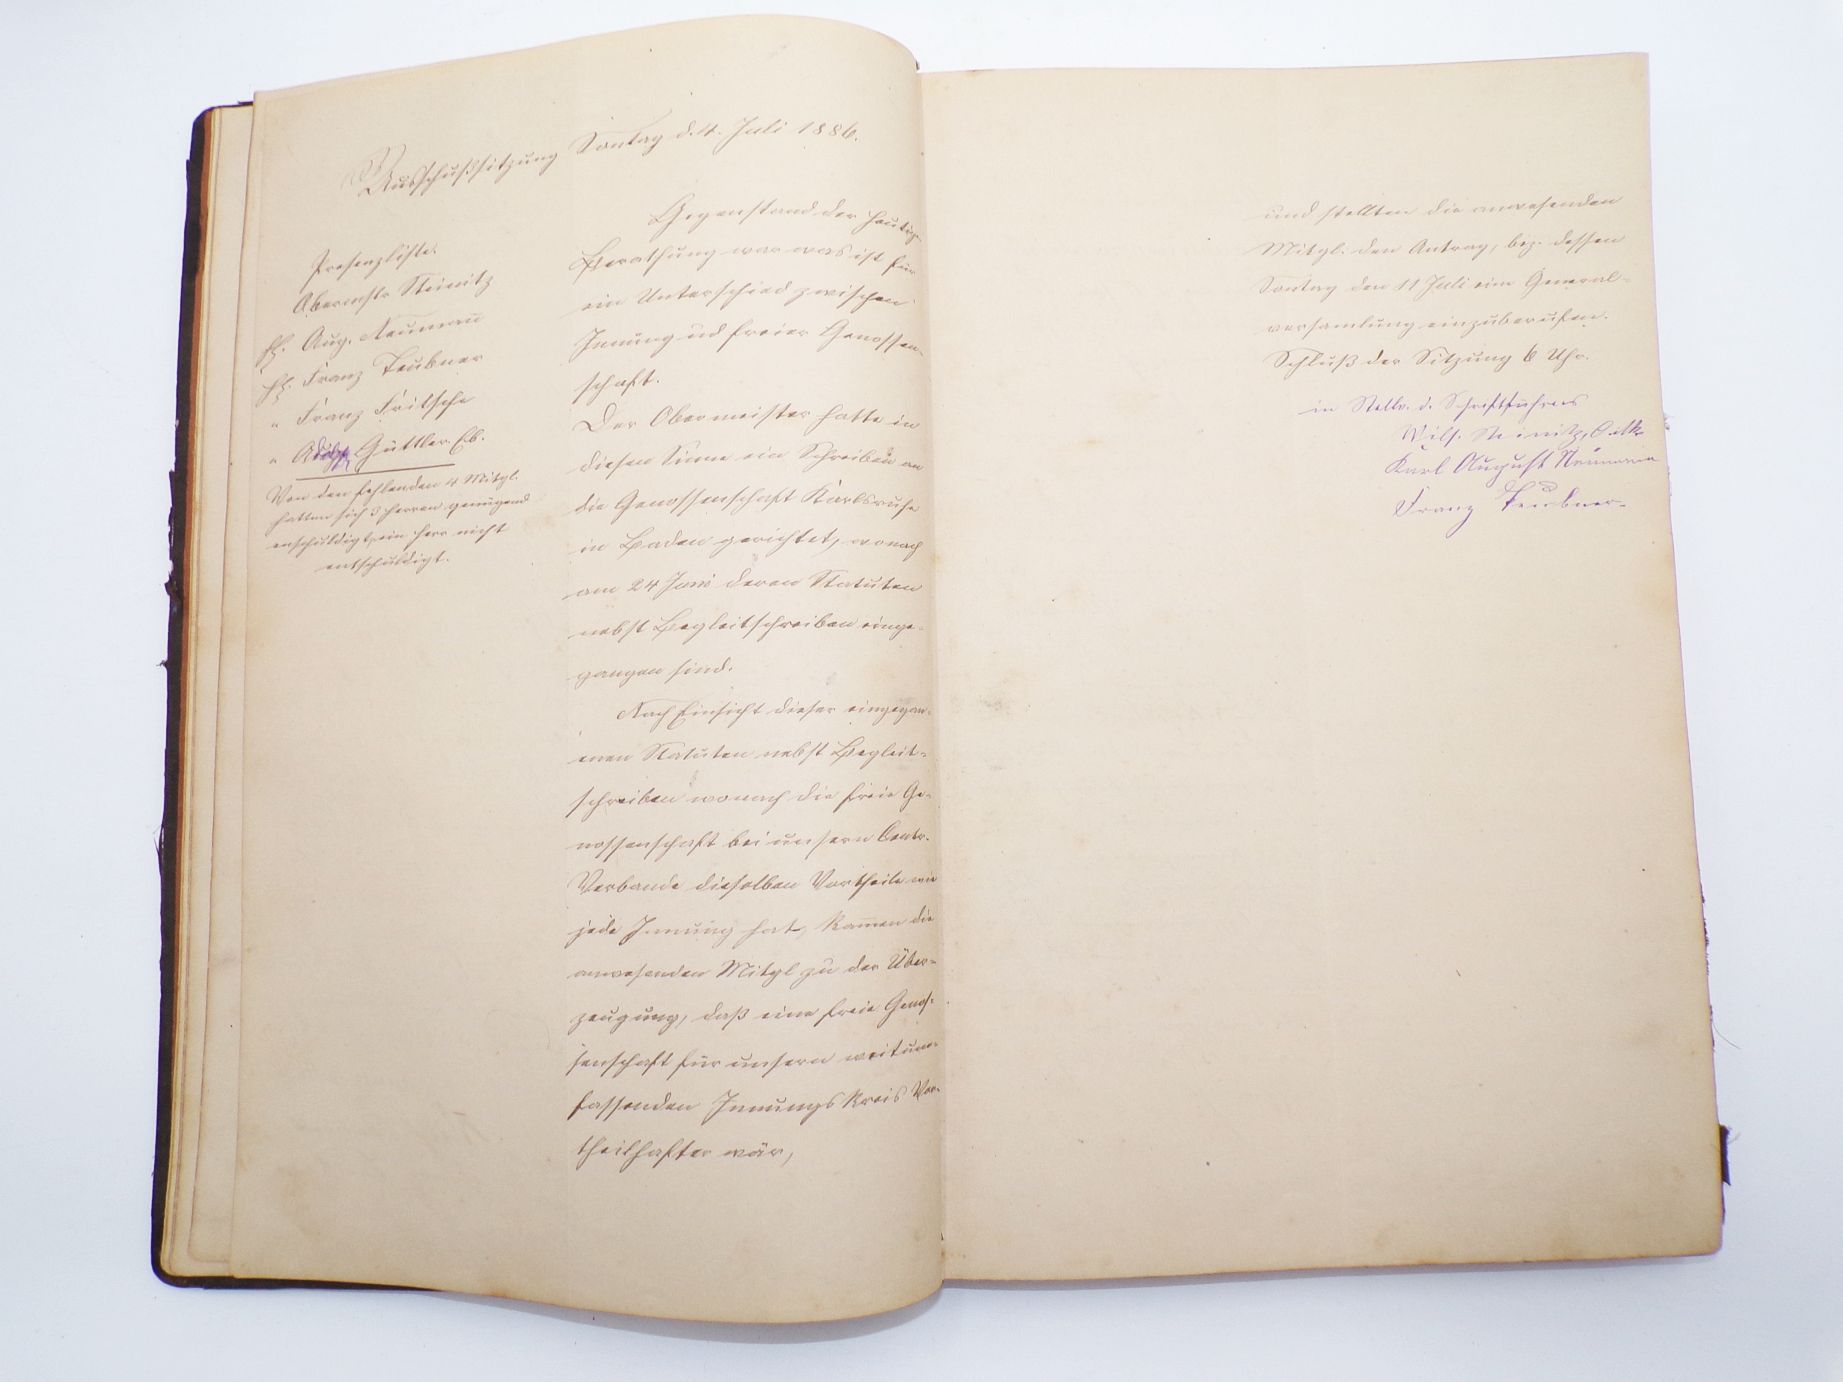 Ausschußsitzung Sontag d. 4. Juli 1886.
Presenzliste.
Obermstr Steinitz
H. Aug. Neumañ
H. Franz Teubner
" Franz Fritsche
" Adolph Güttler Eb.
Von den fehlenden 4 Mitgl.
hatten sich 3 Herren genügend
entschuldigt, ein Herr nicht
entschuldigt.
Gegenstand der heutig.
Berathung war was ist für
ein Unterschied zwischen
Innung ud freier Genossen-
schaft.
Der Obermeister hatte in
diesen Sinne ein Schreiben an
die Genossenschaft Karlsruhe
in Baden gerichtet, wonach
am 24 Juni deren Statuten
nebst Begleitschreiben einge-
gangen sind.
Nach Einsicht dieser eingegan-
enen Statuten nebst Begleit-
schreiben wonach die freie Ge-
nossenschaft bei unsern Centr.
Verbande dieselben Vortheile wie
jede Innung hat, kamen die
anwesenden Mitgl zu der Über-
zeugung, daß eine freie Genos-
senschaft für unsern weitum-
fassenden Innungs Kreis Vor-
theilhafter wär,
und stellten die anwesenden
Mitgl. den Antrag, bez. dessen
Sontag den 11 Juli eine General-
versamlung einzuberufen.
Schluß der Sitzung 6 Uhr.
in Stellv. d. Schriftführers
Wilh. Steinitz,
Karl August Neumann
Franz Teubner.